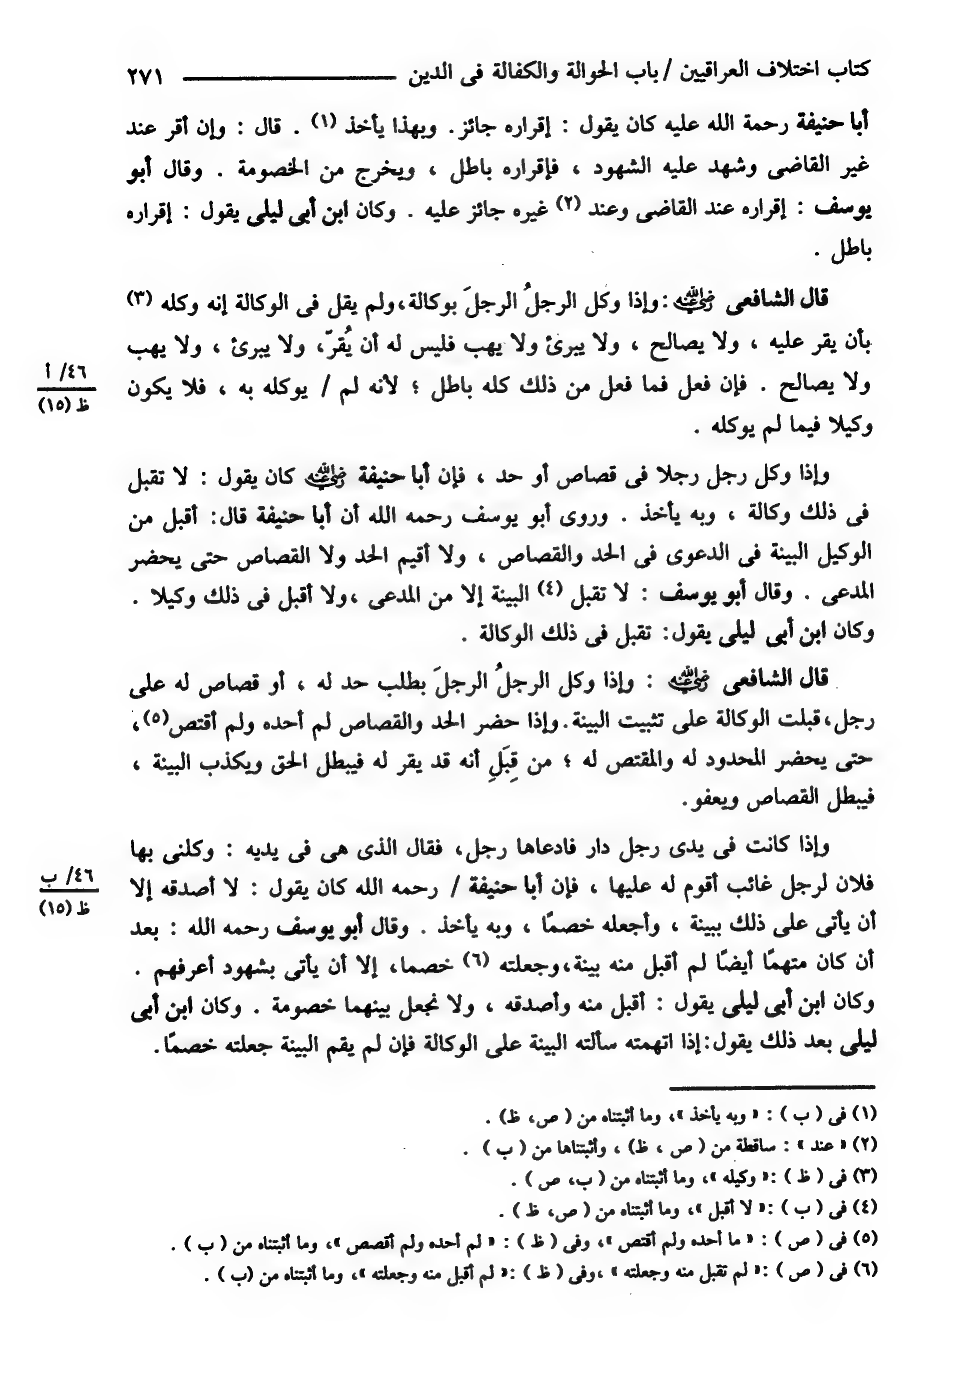 كتاب اختلاف العراقيين / باب الحوالة والكفالة فى الدين ٢٧١
أبا حنيفة رحمة الله عليه كان يقول : إقراره جائز. وبهذا يأخذ (١) . قال : وإن أقر عند
غير القاضى وشهد عليه الشهود ، فإقراره باطل ، ويخرج من الخصومة . وقال أبو
يوسف : إقراره عند القاضى وعند (٢) غيره جائز عليه . وكان ابن أبى ليلى يقول : إقراره
باطل .
قال الشافعى رضي الله عنه :وإذا وكل الرجلُ الرجلَ بوكالة،ولم يقل فى الوكالة إنه وكله (٣)
بأن يقر عليه ، ولا يصالح ، ولا يبرئ ولا يهب فليس له أن يُقرّ، ولا يبرئ ، ولا يهب
ولا يصالح . فإن فعل فما فعل من ذلك كله باطل ؛ لأنه لم / يوكله به ، فلا يكون
٤٦/ أ
ظ (١٥)
وكيلا فيما لم يوكله .
وإذا وكل رجل رجلا فى قصاص أو حد ، فإن أبا حنيفة رضي الله عنه كان يقول : لا تقبل
فى ذلك وكالة ، وبه يأخذ . وروى أبو يوسف رحمه الله أن أبا حنيفة قال: أقبل من
الوكيل البينة فى الدعوى فى الحد والقصاص ، ولا أقيم الحد ولا القصاص حتى يحضر
المدعى . وقال أبو يوسف : لا تقبل (٤) البينة إلا من المدعى ،ولا أقبل فى ذلك وكيلا .
وكان ابن أبى ليلى يقول: تقبل فى ذلك الوكالة .
قال الشافعى رضي الله عنه : وإذا وكل الرجلُ الرجلَ بطلب حد له ، أو قصاص له على
رجل،قبلت الوكالة على تثبيت البينة. وإذا حضر الحد والقصاص لم أحده ولم أقتص(٥)،
حتى يحضر المحدود له والمقتص له ؛ من قِبَلِ أنه قد يقر له فيبطل الحق ويكذب البينة ،
فيبطل القصاص ويعفو.
وإذا كانت فى يدى رجل دار فادعاها رجل، فقال الذى هى فى يديه : وكلنى بها
فلان لرجل غائب أقوم له عليها ، فإن أبا حنيفة / رحمه الله كان يقول : لا أصدقه إلا
٤٦/ ب
ظ (١٥)
أن يأتى على ذلك ببينة ، وأجعله خصمًا ، وبه يأخذ . وقال أبو يوسف رحمه الله : بعد
أن كان متهمًا أيضًا لم أقبل منه بينة،وجعلته (٦) خصما، إلا أن يأتى بشهود أعرفهم .
وكان ابن أبى ليلى يقول : أقبل منه وأصدقه ، ولا نجعل بينهما خصومة . وكان ابن أبى
ليلى بعد ذلك يقول:إذا اتهمته سألته البينة على الوكالة فإن لم يقم البينة جعلته خصمًا.
(١) فى ( ب ) : « وبه يأخذ »، وما أثبتناه من ( ص، ظ) .
(٢) « عند » : ساقطة من ( ص ، ظ) ، وأثبتناها من ( ب ) .
(٣) فى ( ظ ) :« وكيله »، وما أثبتناه من ( ب، ص ) .
(٤) فى ( ب ) :« لا أقبل »، وما أثبتناه من ( ص، ظ ) .
(٥) فى ( ص ) : « ما أحده ولم أقتص »، وفى ( ظ ) : « لم أحده ولم أقصص »، وما أثبتناه من ( ب ) .
(٦) فى ( ص ) :« لم تقبل منه وجعلته » ،وفى ( ظ ) :« لم أقبل منه وجعلته »، وما أثبتناه من (ب ) .